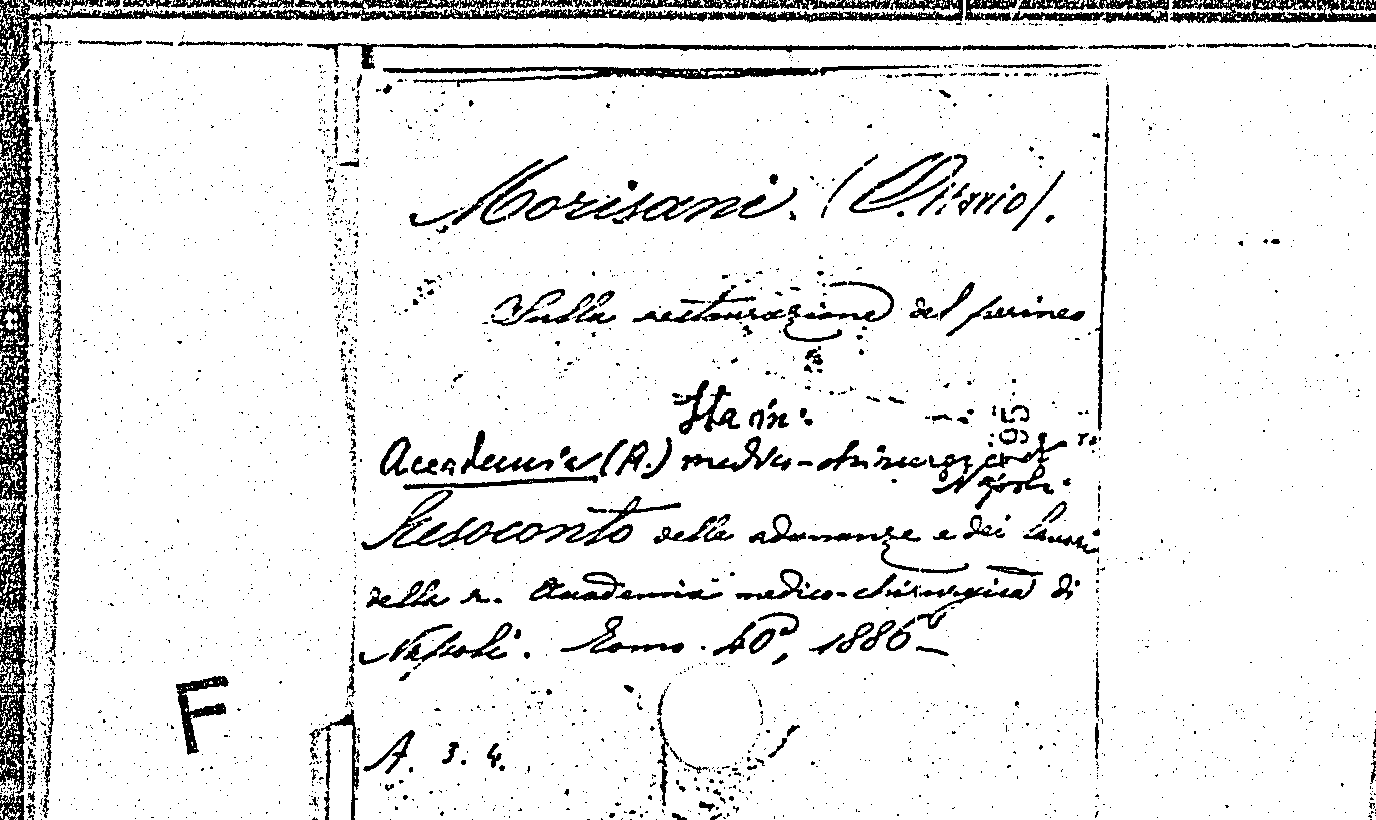 Morisani. (Ottavio).
Sulla restaurazione del perineo
Sta in:
Accademia (R.) medico-chirurgica di
Napoli.
Resoconto delle adunanze e dei lavori
della r. Accademia medico-chirurgica di
Napoli. Tomo. 40º, 1886
A. 3. 4.
F